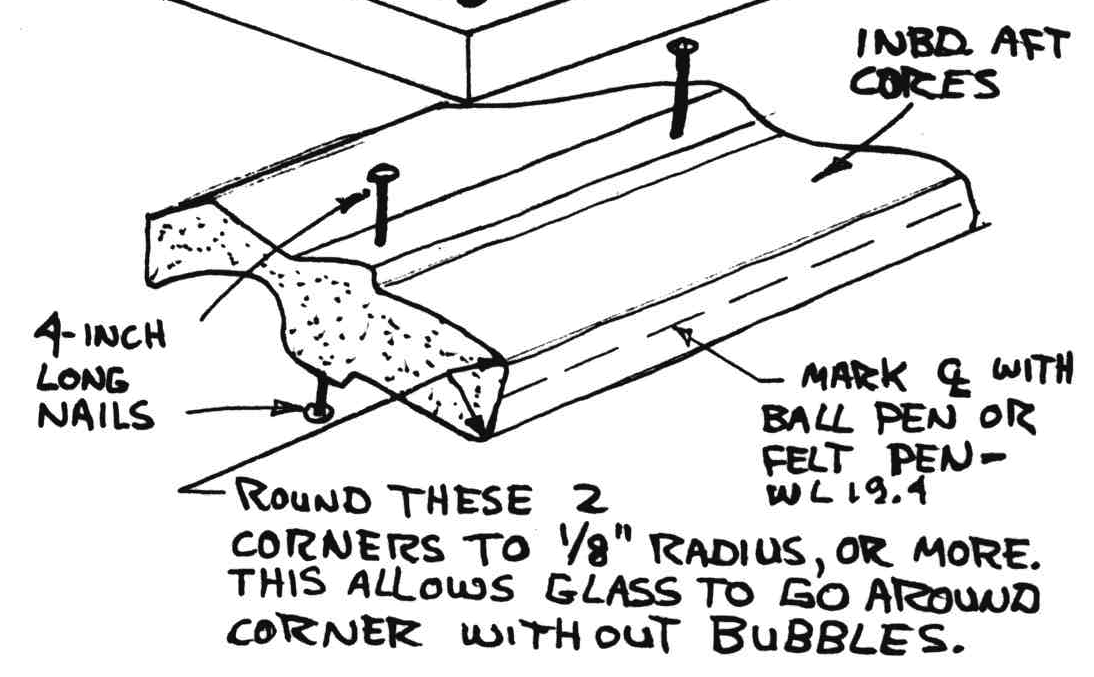 INBD. AFT
CORES
4-INCH
LONG
NAILS
MARK ℄ WITH
BALL PEN OR
FELT PEN-
WL 19.4
ROUND THESE 2
CORNERS TO 1/8" RADIUS, OR MORE.
THIS ALLOWS GLASS TO GO AROUND
CORNER WITHOUT BUBBLES.